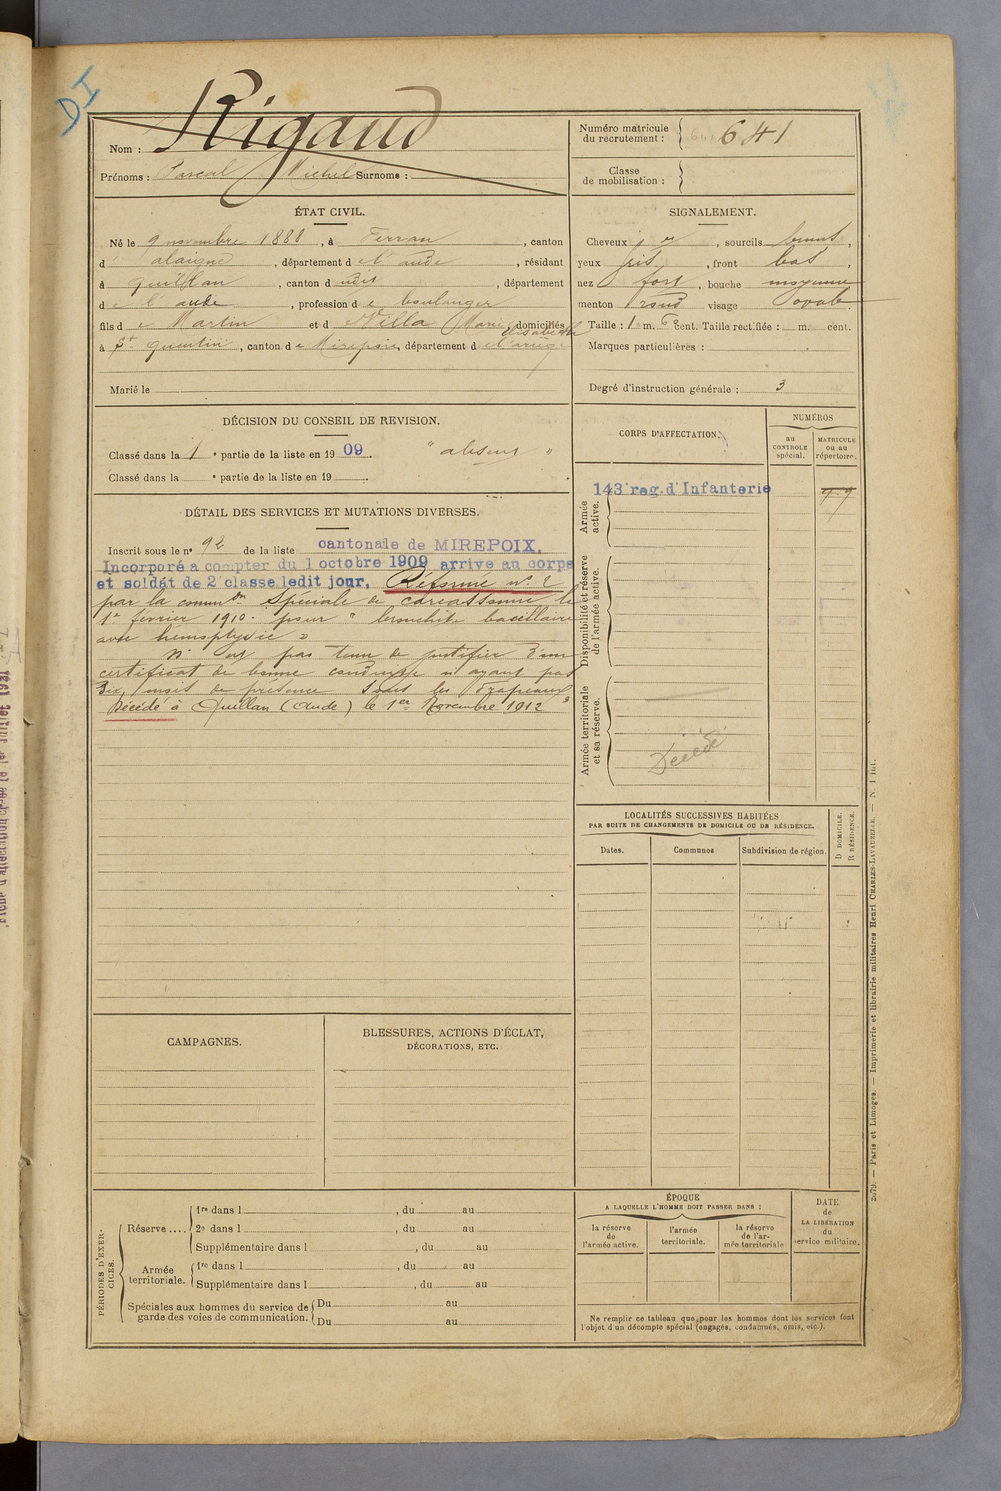 DI
Nom : Rigaud
Prénoms : Pascal Michel Surnoms :
Numéro matricule du recrutement : 641
Classe de mobilisation :
ÉTAT CIVIL.
Né le 9 novembre 1888, à Ferran, canton
d' alaigne, département d e l'aude, résidant
à quillan, canton d udit, département
d e l'aude, profession d e boulanger
fils d e Martin et d e Villa Marie Elisabeth, domiciliés
à St quentin, canton d e Mirepoix, département d e l'ariège
Marié le
SIGNALEMENT.
Cheveux, sourcils bruns,
yeux gris, front bas,
nez fort, bouche moyenne
menton rond visage ovale
Taille : 1 m. 62 cent. Taille rectifiée : m. cent.
Marques particulières :
Degré d'instruction générale : 3
DÉCISION DU CONSEIL DE REVISION.
Classé dans la 1 e partie de la liste en 1909. " absent "
Classé dans la e partie de la liste en 19 .
DÉTAIL DES SERVICES ET MUTATIONS DIVERSES.
Inscrit sous le n° 92 de la liste cantonale de MIREPOIX.
Incorporé a compter du 1 octobre 1909 arrive au corps
et soldat de 2e classe ledit jour. Réformé n° 2
par la common Spéciale de Carcassonne le
1er février 1910 pour " bronchite bacillaire
avec hémoptysie "
N' ay pas tenu de justifier d'un
certificat de bonne conduite n'ayant pas
Six mois de présence sous les Drapeaux
Décédé à Quillan (Aude) le 1er Novembre 1912
CORPS D'AFFECTATION.
NUMÉROS
au CONTROLE spécial.
MATRICULE ou au répertoire.
Armée active.
143e reg. d'Infanterie
Disponibilité et réserve de l'armée active.
Armée territoriale et sa réserve.
Décédé
LOCALITÉS SUCCESSIVES HABITÉES
PAR SUITE DE CHANGEMENTS DE DOMICILE OU DE RÉSIDENCE.
Dates.
Communes
Subdivision de région.
D DOMICILE.
R RÉSIDENCE.
CAMPAGNES.
BLESSURES, ACTIONS D'ÉCLAT,
DÉCORATIONS, ETC.
PÉRIODES D'EXERCICES.
Réserve ....
1re dans l , du au
2e dans l , du au
Supplémentaire dans l , du au
Armée territoriale.
1re dans l , du au
Supplémentaire dans l , du au
Spéciales aux hommes du service de garde des voies de communication.
Du au
Du au
ÉPOQUE
A LAQUELLE L'HOMME DOIT PASSER DANS :
la réserve de l'armée active.
l'armée territoriale.
la réserve de l'armée territoriale
DATE de LA LIBÉRATION du service militaire.
Ne remplir ce tableau que pour les hommes dont les services font
l'objet d'un décompte spécial (engagés, condamnés, omis, etc.).
Paris et Limoges. — Imprimerie et librairie militaires Henri CHARLES-LAVAUZELLE. — N. 1 int.